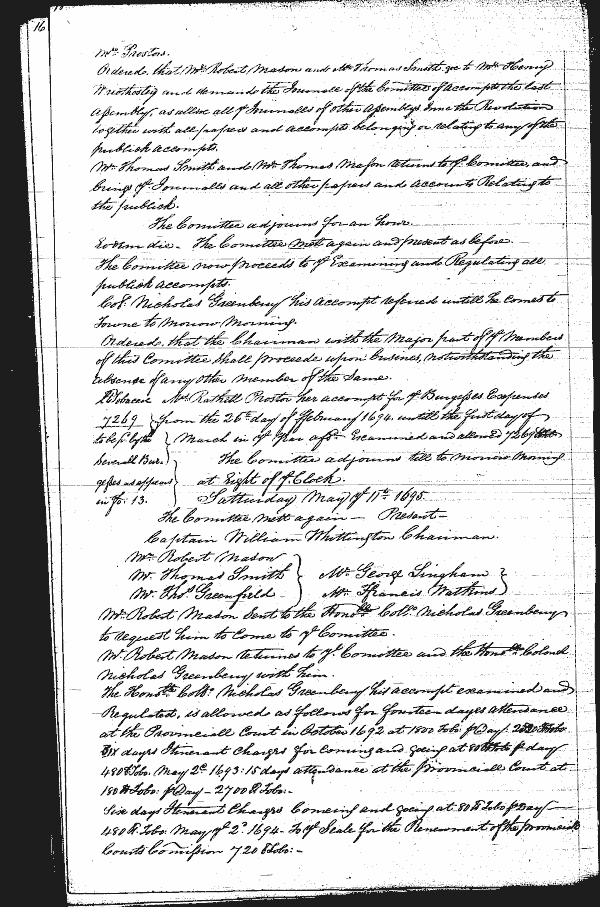 16
Mrs. Prostors.
Ordered that Mr. Robert Mason and Mr. Thomas Smith goe to Mr. Henry
Wriothesley and demand the Journall of the Comittee of accompts the last
Assembly, as allsoe all ye Journalls of other Assemblys since the Revolution
together with all papers and accompts belonging or relating to any of the
publick accompts.
Mr. Thomas Smith and Mr. Thomas Mason returns to ye Comittee, and
brings ye Journalls and all other papers and accounts Relating to
the publick.
The Comittee adjourns for an hour.
Eodem die. The Comittee mett again and present as before.
The Comittee now proceeds to ye Examining and Regulating all
publick accompts.
Col. Nicholas Greenberry his accompt referred untill he comes to
Towne to morrow Morning.
Ordered, that the Chairman with the Major part of ye Members
of this Comittee shall proceede upon busines, notwithstanding the
absence of any other member of the same.
lb Tobacco Mrs. Rachell Prostor her accompt for ye Burgesses Expenses
7269 from the 26th day of ffebruary 1694. untill the first day of
to be pd by the March in ye year aff. Examined and allowed 7269
Severall Bur.. The Comittee adjourns till to morrow Morning
gesses as appears at Eight of ye Clock.
in fo. 13. Satturday May ye 11th 1695.
The Comittee mett again — Present —
Captain William Whittington Chairman.
Mr. Robert Mason
Mr. Thomas Smith Mr. George Lingham
Mr. Thos. Greenfield Mr. Ffrancis Watkins
Mr. Robert Mason sent to the Honoble Collo. Nicholas Greenberry
to request him to Come to ye Comittee.
Mr. Robert Mason returnes to ye Comittee and the Honoble Colonel
Nicholas Greenberry with him.
The Honoble Collo. Nicholas Greenberry his accompt examined and
Regulated, is allowed as follows for fourteen dayes attendance
at the Provinciall Court in October 1692 at 180 lb Tobo. p Day. 2520 lb Tobo
Six dayes Itinerant Charges for Coming and going at 80 lb Tobo p day
480 lb Tobo. May 2d. 1693. 15 days attendance at the Provinciall Court at
180 lb Tobo. p Day — 2700 lb Tobo. —
Six days Itinerant Charges Comeing and going at 80 lb Tobo p Day —
480 lb. Tobo. May ye 2d. 1694 — To ye Seale for the Renewment of the Provinciall
Courts Comission 720 lb Tobo: —